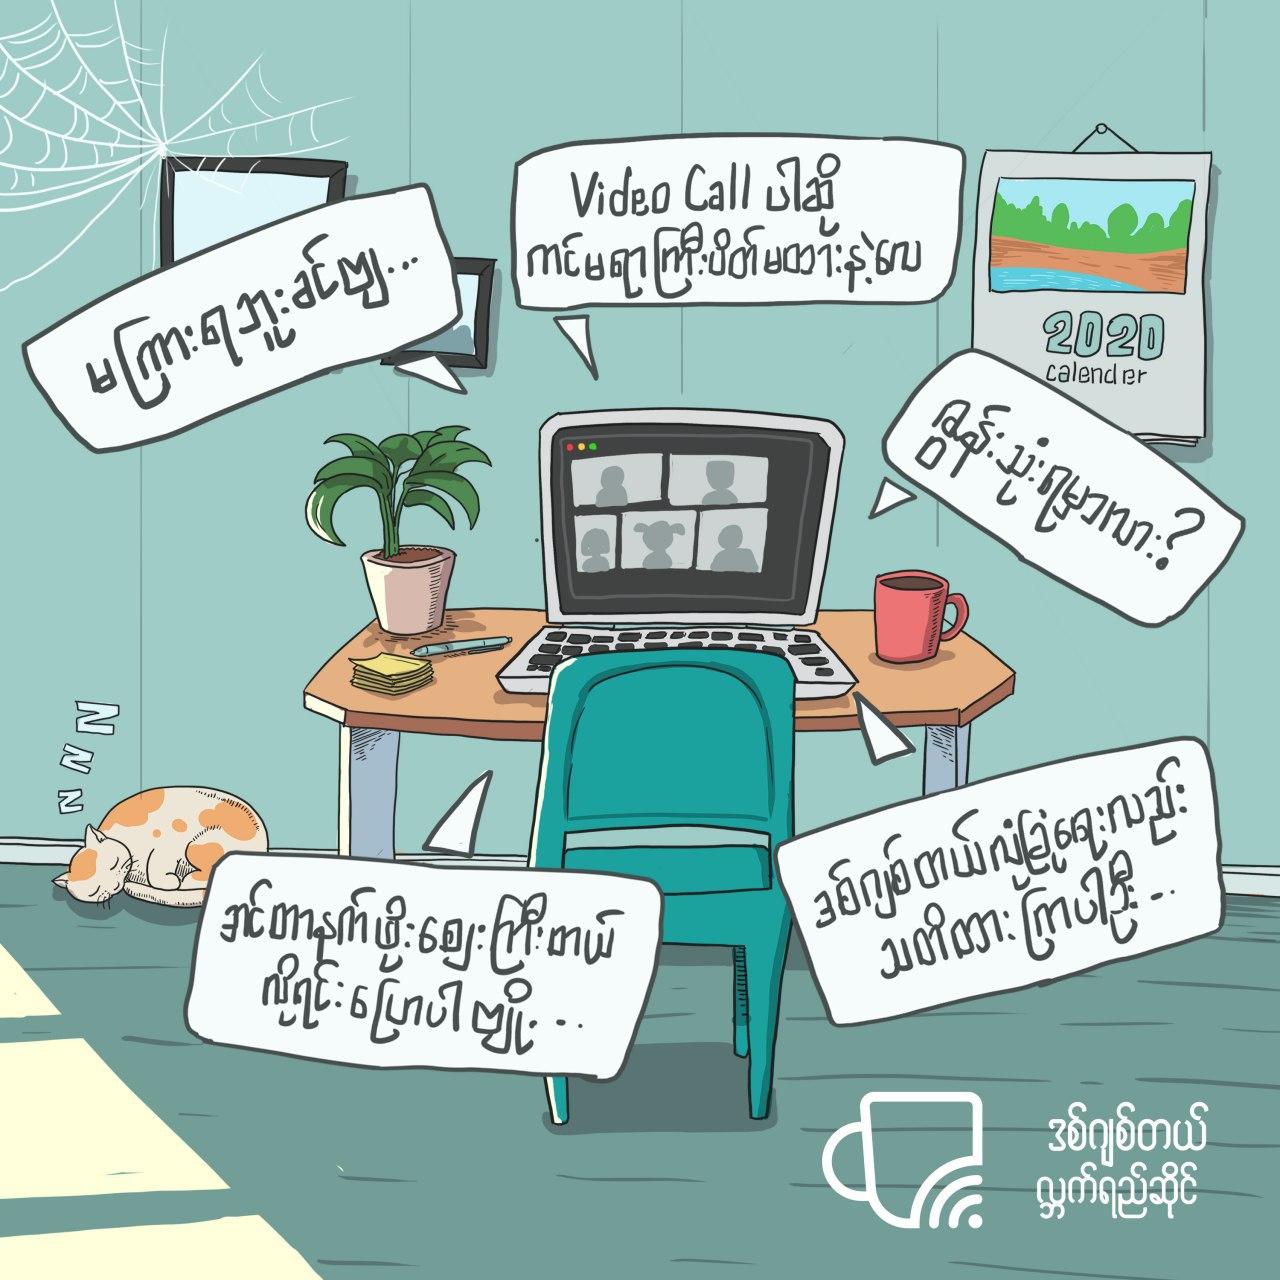 မကြားရဘူးခင်ဗျ...
Video Call ပါဆို
ကင်မရာကြီးပိတ်မထားနဲ့လေ
2020
calender
ဇွန်းသုံးရမှာလား?
အင်တာနက်ဖိုးဈေးကြီးတယ်
လို့ရင်းပြောပါဗျိုး...
ဒစ်ဂျစ်တယ်လုံခြုံရေးလည်း
သတိထားကြပါဦး...
N N N
ဒစ်ဂျစ်တယ်
လ္ဘက်ရည်ဆိုင်